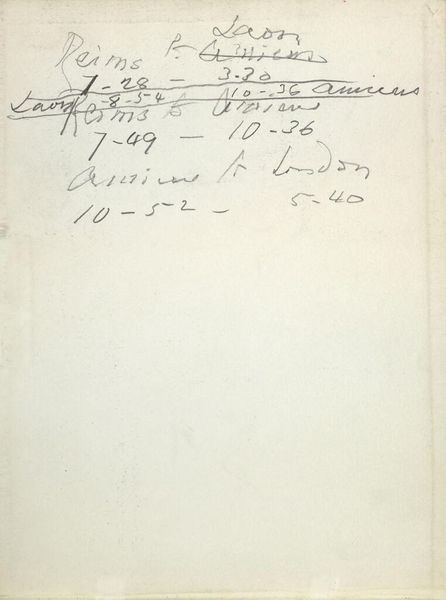 Laon
Reims to Amiens
7-28 - 3-30
Laon -8-54 10-36 Amiens
Reims to Amiens
7-49 - 10-36
Amiens to London
10-52 - 5-40